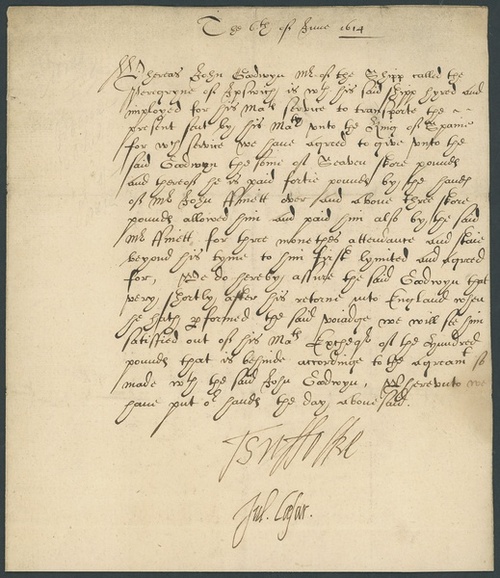 The 6th of June 1614
Whereas John Goodwyn Mr of the Shipp called the
Peregryne of Ipswich is wth his said shipp hyred and
imployed for his Mats service to transporte the ~ ~
present sent by his Maty unto the King of Spaine
for wch service we have agreed to give unto the
said Goodwyn the some of Seaven skore pounds
and thereof he is paid fortie pounds by the hands
of Mr John ffinett over and above three skore
pounds allowed him and paid him also by the said
Mr ffinett, for three monethes attendance and staie
beyond his tyme to him first lymited and agreed
for, We do hereby assure the said Goodwyn that
very shortly after his retorne into England when
he hath pformed the said voiadge we will see him
satisfied out of his Mats Excheqr of the hundred
pounds that is behinde accordinge to the agreamt so
made wth the said John Goodwyn, Whereunto we
have put or hands the day above said.
T Suffolke
Jul. Cæsar.